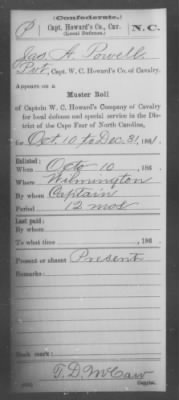 (Confederate.)
P Capt. Howard's Co., Cav. N.C.
(Local Defense.)
Jas. A. Powell
Pvt, Capt. W. C. Howard's Co. of Cavalry.
Appears on a
Muster Roll
of Captain W. C. Howard's Company of Cavalry
for local defense and special service in the Dis-
trict of the Cape Fear of North Carolina,
for Oct. 10 to Dec. 31, 1861.
Enlisted:
When Octo 10, 186 .
Where Wilmington
By whom Captain
Period 12 mos
Last paid:
By whom
To what time , 186 .
Present or absent Present
Remarks:
Book mark:
T. D. McCaw
Copyist.